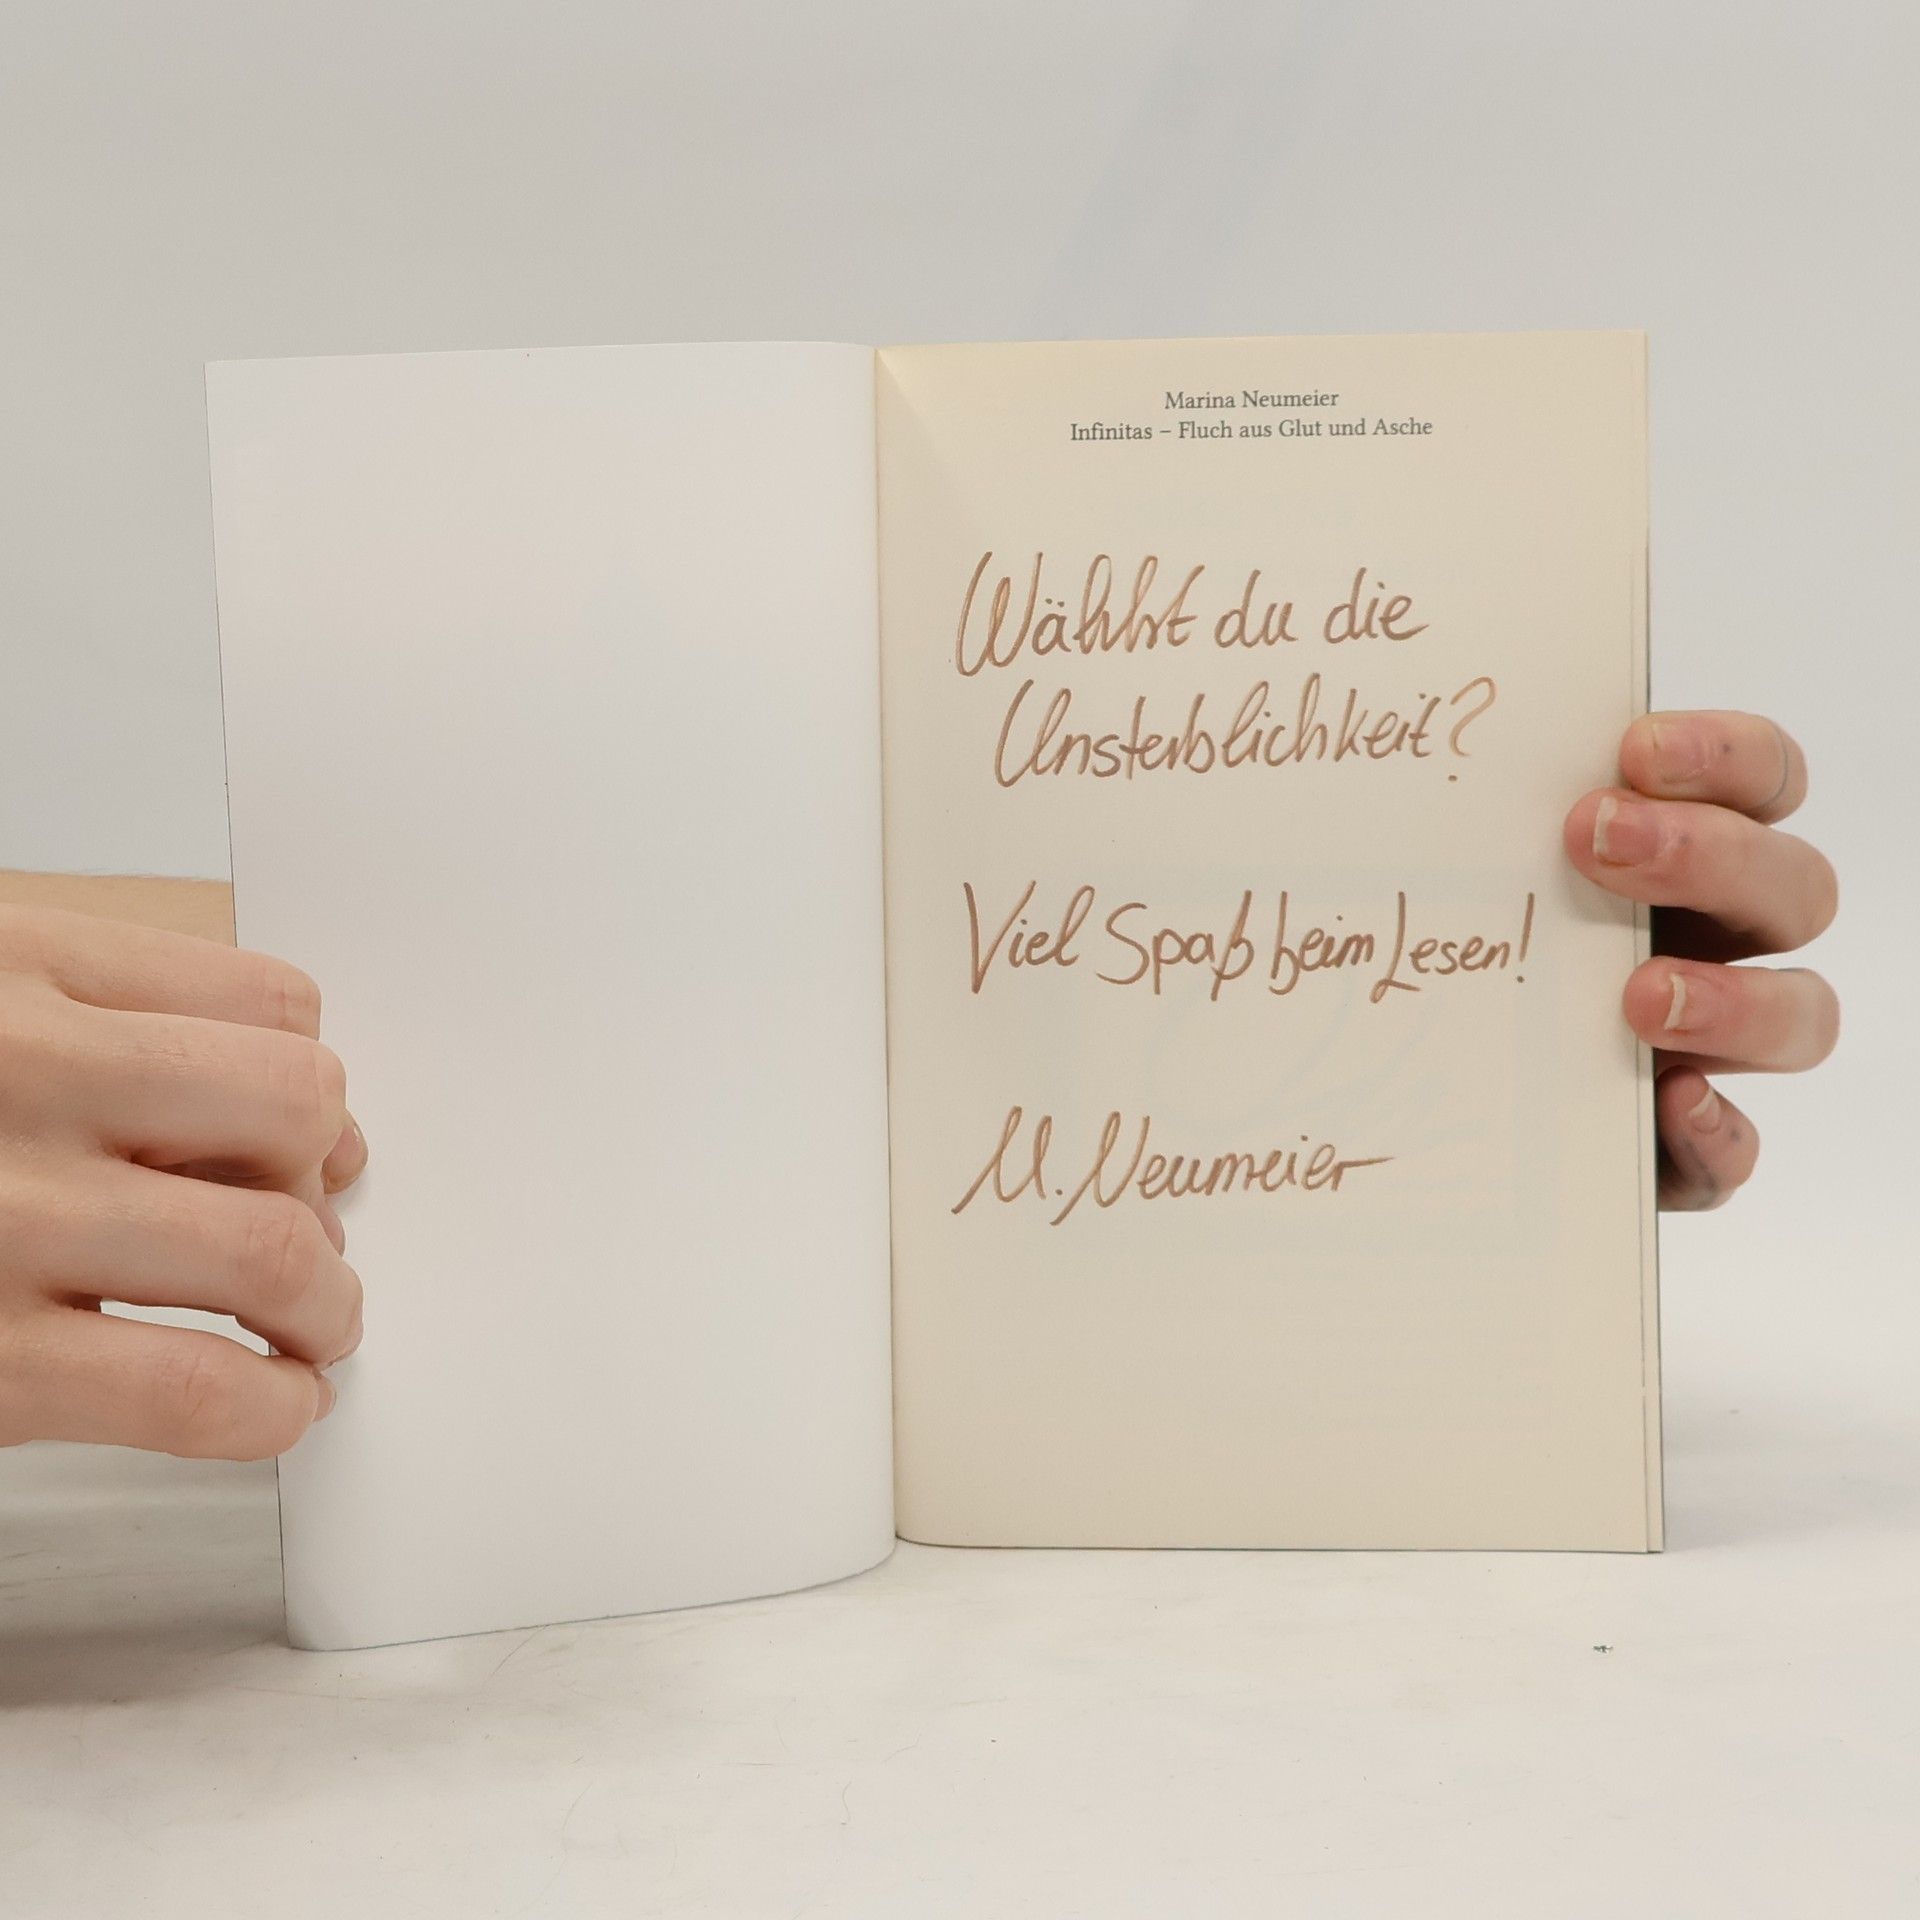 Marina Neumeier
Infinitas – Fluch aus Glut und Asche
Wählst du die
Unsterblichkeit?
Viel Spaß beim Lesen!
M. Neumeier